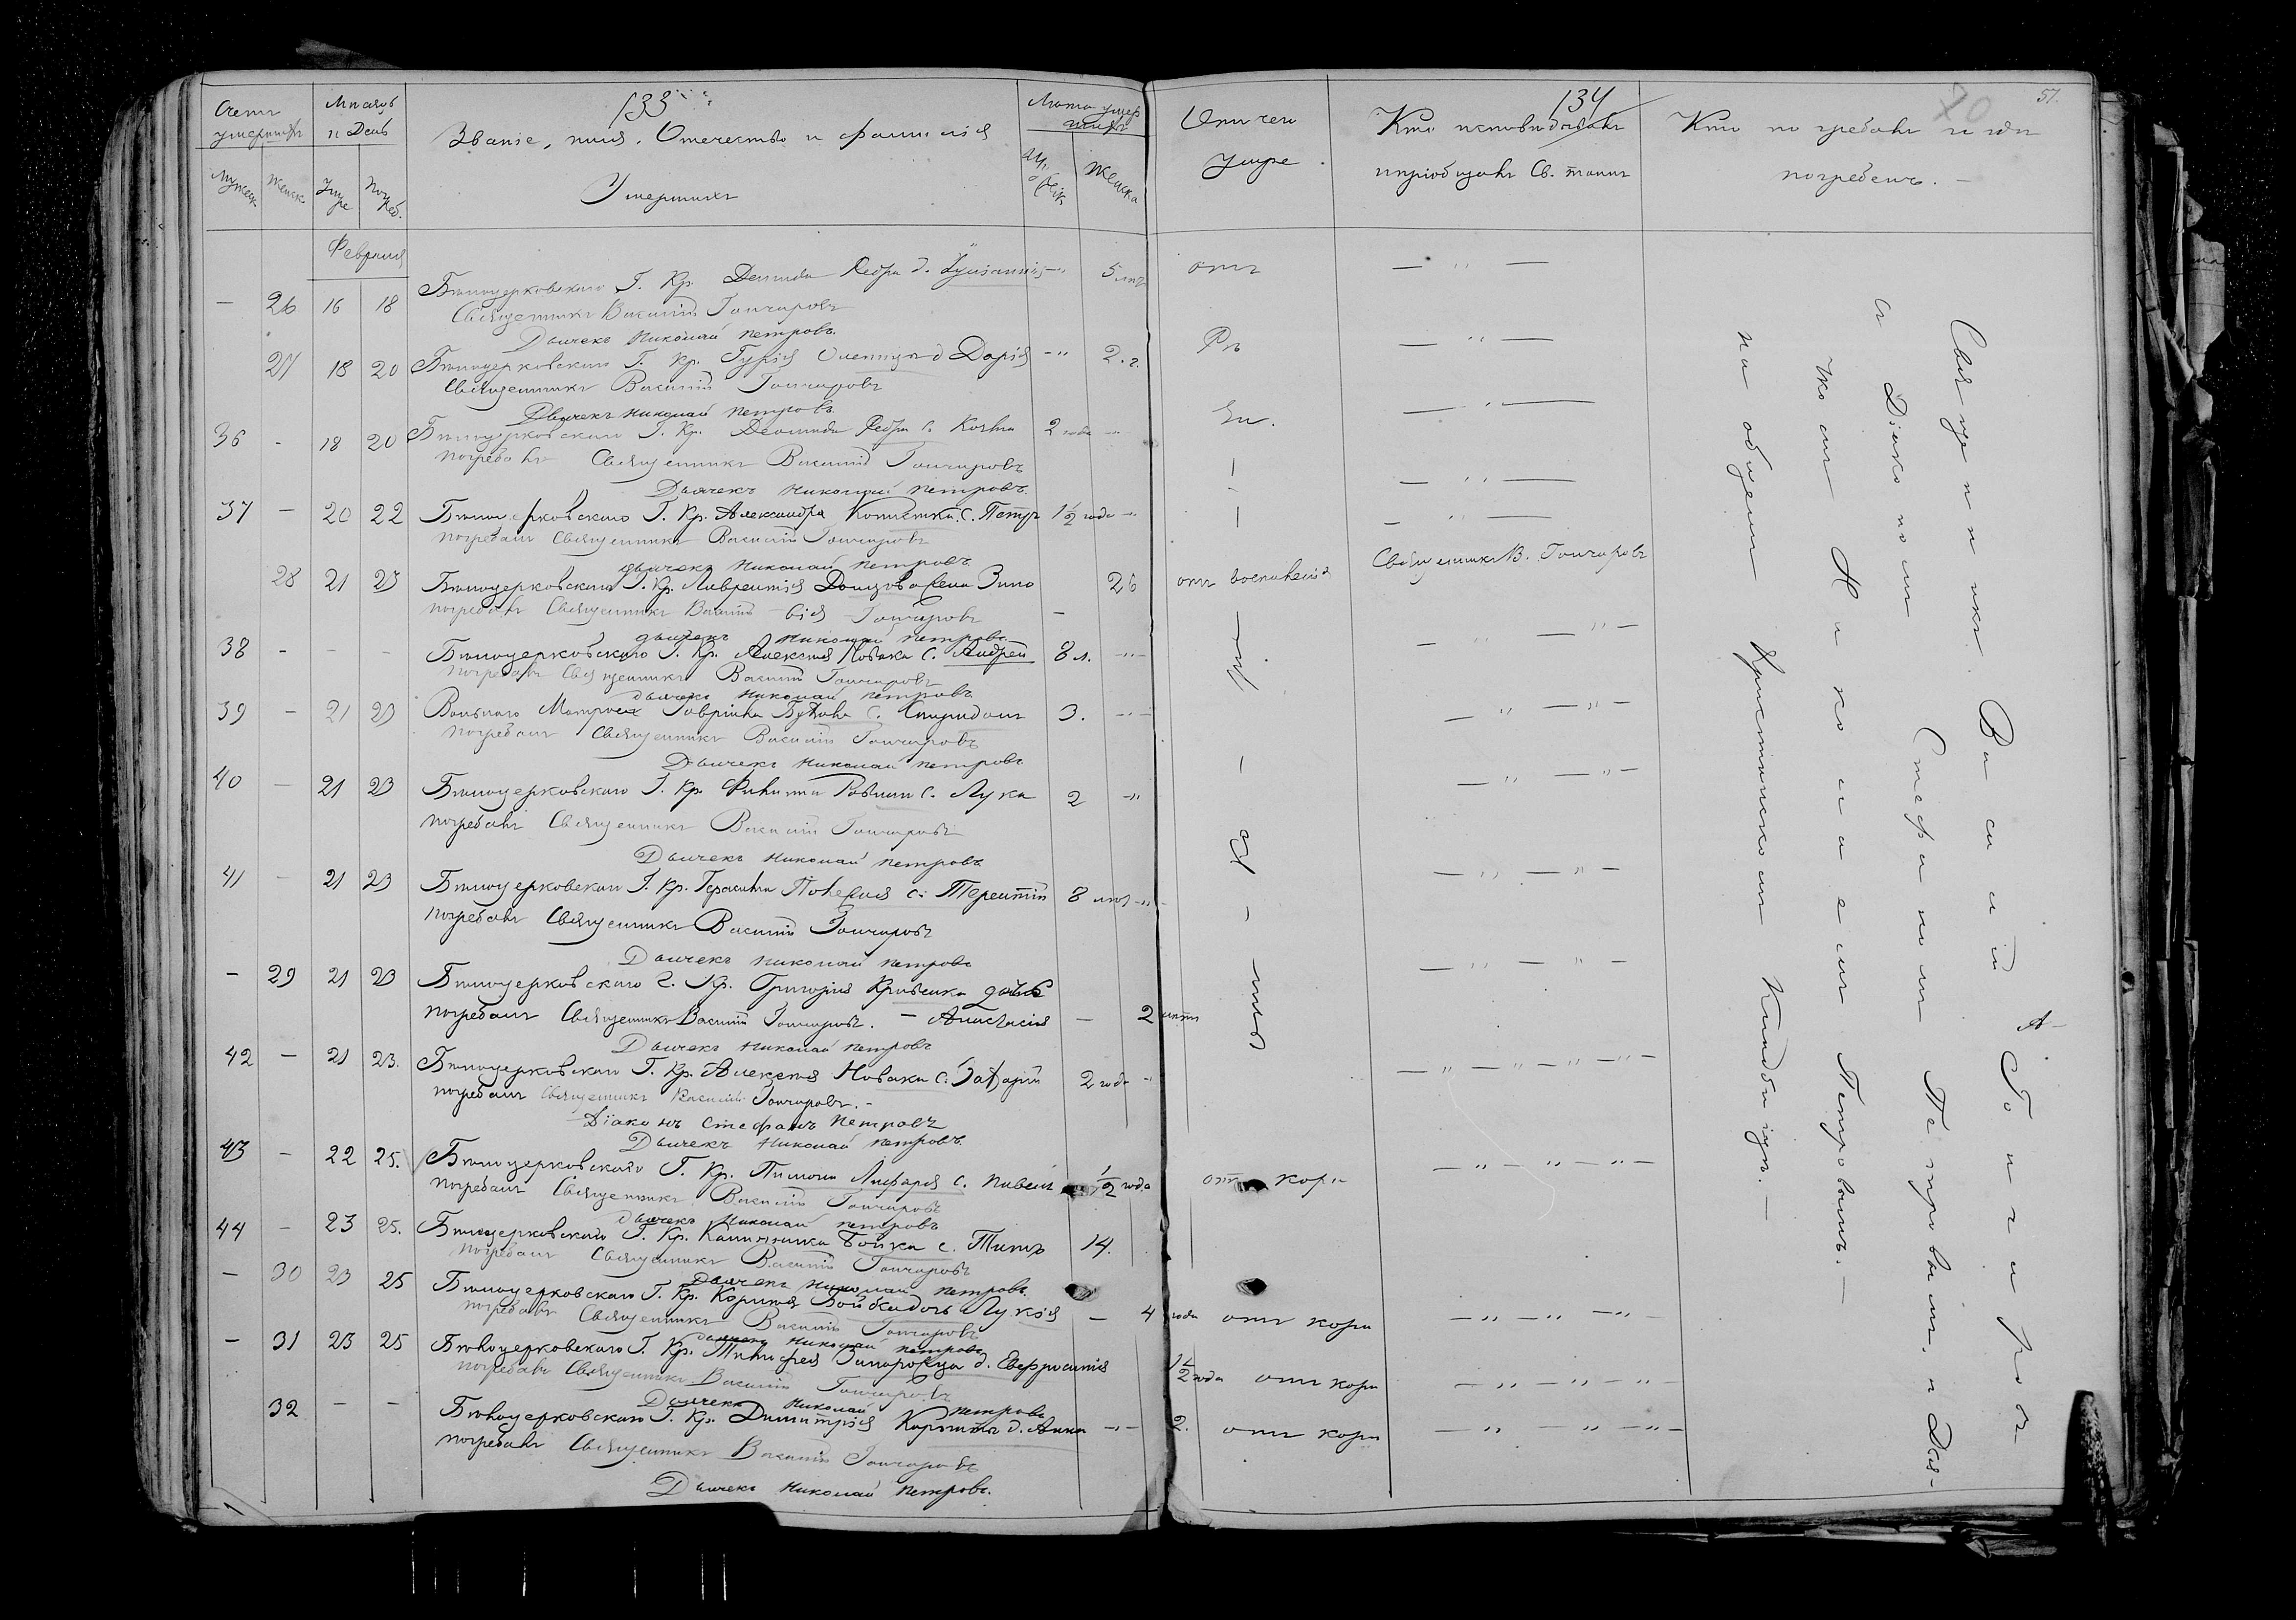 133
Счетъ умершихъ
Мѣсяцъ и День
Званіе, имя, Отечество и фамилія
Умершихъ
Лѣта умершихъ
Мужеск
Женск
Умре
Погреб.
Муж
Женска
Февраля
- 26 16 18 Бѣлоцерковскаго Г. Кр. Демида Федра д. 5 лѣтъ
Священникъ Василій Гончаровъ
Дьячекъ Николай Петровъ.
27 18 20 Бѣлоцерковскаго Г. Кр. Гурія д Дарія -"- 2. г.
Священникъ Василій Гончаровъ
Дьячекъ Николай Петровъ
36 - 18 20 Бѣлоцерковскаго Г. Кр. Демида Федра с. Козма 2 года
погребалъ Священникъ Василій Гончаровъ
Дьячекъ Николай Петровъ.
37 - 20 22 Бѣлоцерковскаго Г. Кр. Александра с. Петръ 1½ года
погребалъ Священникъ Василій Гончаровъ
дьячекъ Николай Петровъ.
28 21 23 Бѣлоцерковскаго Г. Кр. Лаврентія Донцова жена Зино 26
погребалъ Священникъ Василій -вія Гончаровъ
дьячекъ Николай Петровъ.
38 - - - Бѣлоцерковскаго Г. Кр. Алексѣя Новака с. Андрей 8 л.
погребалъ Священникъ Василій Гончаровъ
дьячекъ Николай Петровъ.
39 - 21 23 Вольнаго Матроса Гавріила с. Спиридонъ 3.
погребалъ Священникъ Василій Гончаровъ
Дьячекъ Николай Петровъ
40 - 21 23 Бѣлоцерковскаго Г. Кр. Филипа с. Лука 2
погребалъ Священникъ Василій Гончаровъ
Дьячекъ Николай Петровъ.
41 - 21 23 Бѣлоцерковскаго Г. Кр. Герасима с. Терентій 8 лѣтъ
погребалъ Священникъ Василій Гончаровъ
Дьячекъ Николай Петровъ
- 29 21 23 Бѣлоцерковскаго Г. Кр. Григорія Кривенка дочь
погребалъ Священникъ Василій Гончаровъ. - Анастасія - 2 лѣтъ
Дьячекъ Николай Петровъ
42 - 21 23. Бѣлоцерковскаго Г. Кр. Алексѣя Новака с. Захарій 2 года
погребалъ Священникъ Василій Гончаровъ.
Діаконъ Стефанъ Петровъ
Дьячекъ Николай Петровъ.
43 - 22 25. Бѣлоцерковскаго Г. Кр. Пимона Лифаря с. Павелъ ½ года
погребалъ Священникъ Василій Гончаровъ
дьячекъ Николай Петровъ
44 - 23 25. Бѣлоцерковскаго Г. Кр. Калинника Бойка с. Титъ 14.
погребалъ Священникъ Василій Гончаровъ
Дьячекъ Николай Петровъ.
- 30 23 25 Бѣлоцерковскаго Г. Кр. Корнѣя дочь Лукія - 4 года
погребалъ Священникъ Василій Гончаровъ
Дьячекъ Николай Петровъ
- 31 23 25 Бѣлоцерковскаго Г. Кр. Тимофея Запорожца д. Евфросинія 1½ года
погребалъ Священникъ Василій Гончаровъ
Дьячекъ Николай Петровъ
32 - - Бѣлоцерковскаго Г. Кр. Димитрія д. Анна 2.
погребалъ Священникъ Василій Гончаровъ
Дьячекъ Николай Петровъ.
134
20
57.
Отъ чего умре.
Кто исповѣдывалъ
и пріобщалъ Св. таинъ
Кто погребалъ и гдѣ
погребенъ. -
отъ
отъ воспаленія
Священникъ В. Гончаровъ
отъ кори
отъ кори
отъ кори
отъ кори
Священникъ Василій Гончаровъ
съ Діакономъ Стефаномъ Петровымъ, и Дья-
чкомъ Николаемъ Петровымъ. -
на общемъ Христіанскомъ Кладбищѣ. -